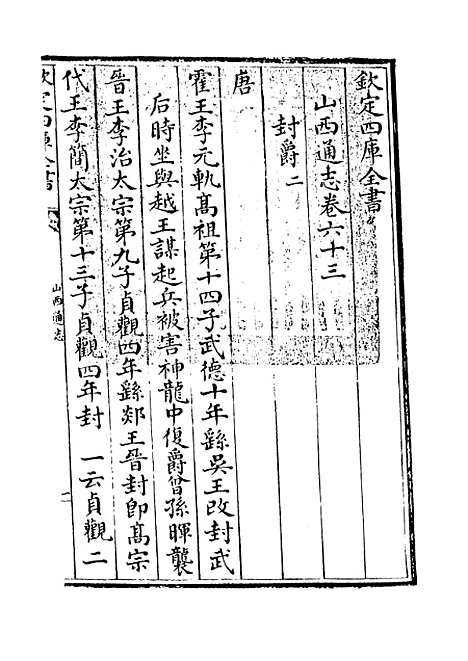 欽定四庫全書
山西通志卷六十三
封爵二
唐
霍王李元軌髙祖第十四子武德十年繇吳王改封武
后時坐與越王謀起兵被害神龍中復爵曾孫暉襲
晉王李治太宗第九子貞觀四年繇郯王晉封即髙宗
代王李簡太宗第十三子貞觀四年封　一云貞觀二
欽定四庫全書
山西通志